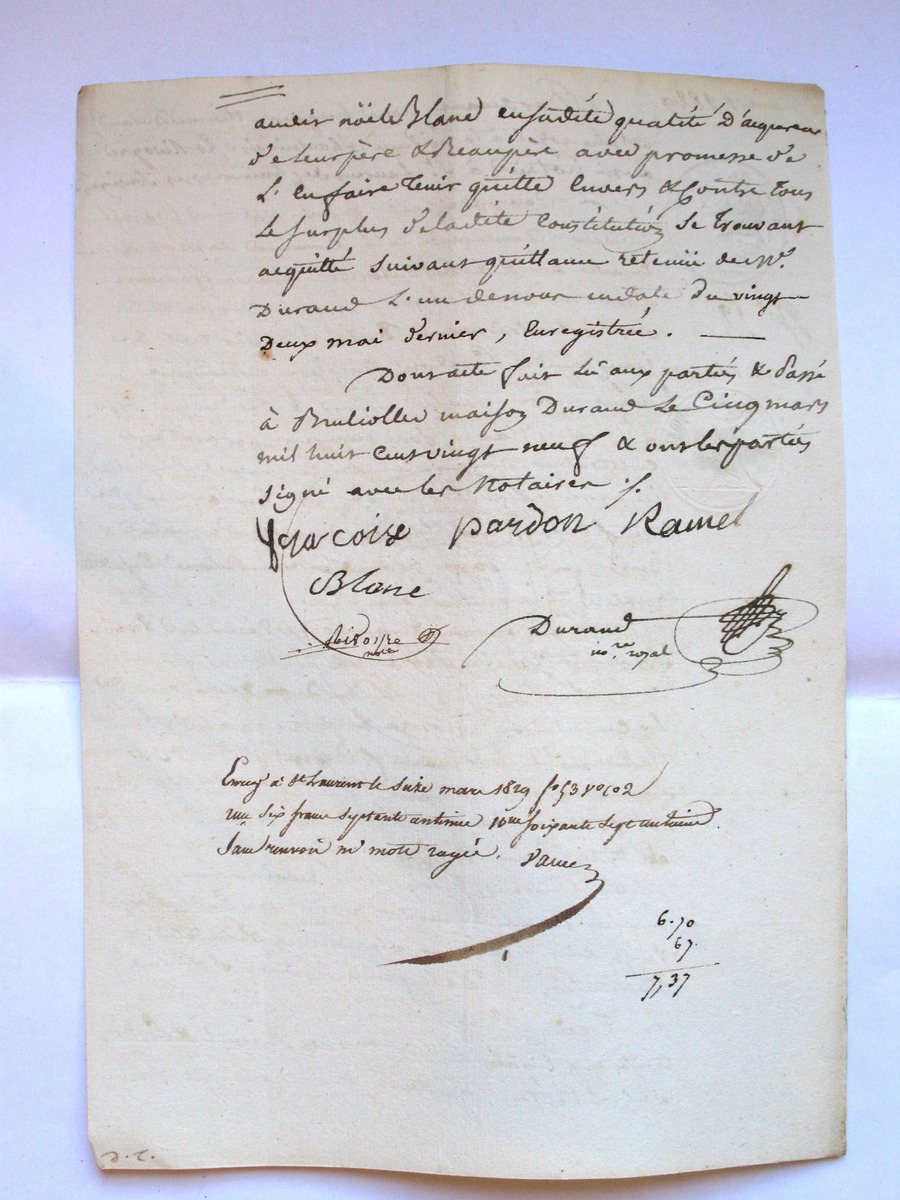 audit nöel Blanc ensadite qualité D'acquereur
de leur père & Beaupère avec promesse de
L'en faire Tenir quitte Envers & Contre Tous
Le surplus deladite Constitution se trouvant
acquitté suivant quittance retenüe de Me.
Durand L'un denous endate du vingt
Deux mai dernier, Enregistrée.
Dont acte fait Lû aux parties & Passé
à Brulliolles maison Durand Le Cinq mars
mil huit cent vingt neuf & ont les parties
signé avec les Notaires ./.
françoise pardon Ramel
Blanc
Durand
no.re royal
nore
Enreg à St Laurent le Seize mars 1829 fo 53 Vo Co 2
reçu Six francs Septante centimes 10me Soixante Sept centimes
Sans renvoi ni mots rayés.
6.70
67.
7,37